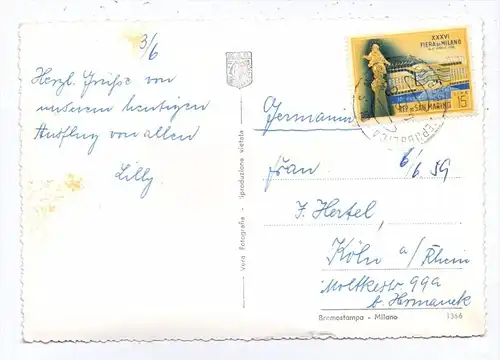 3/6
Herzl. Grüße von
unserem heutigen
Ausflug von allen
Lilly
Vera Fotografia - riproduzione vietata
XXXVI
FIERA DI MILANO
REP. DI SAN MARINO
15
Germania
6/6.59
Frau
J. Hertel,
Köln a/Rhein
Moltkestr. 99a
b. Hermanek
Bromostampa - Milano
1366